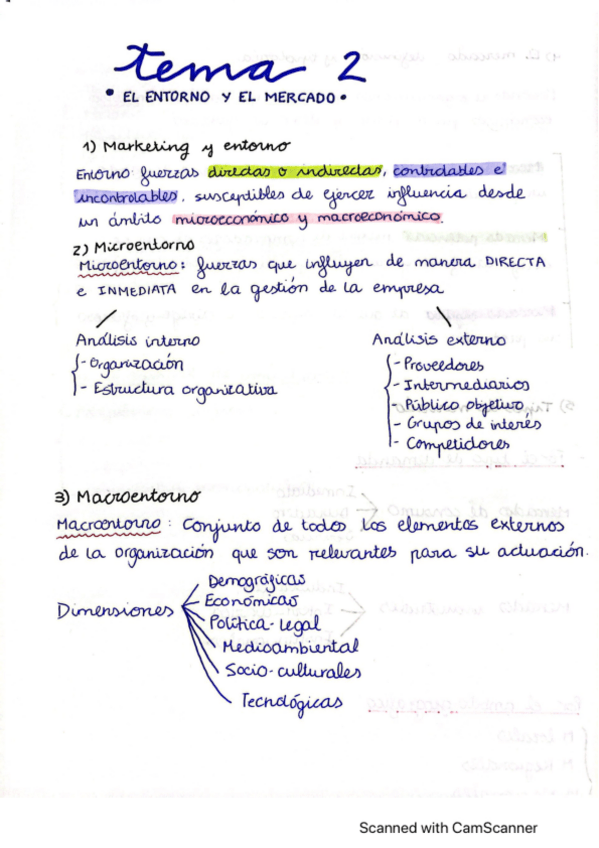 tema 2
• EL ENTORNO Y EL MERCADO •
1) Marketing y entorno
Entorno: fuerzas directas o indirectas, controlables e
incontrolables, susceptibles de ejercer influencia desde
un ámbito microeconómico y macroeconómico.
2) Microentorno
Microentorno: fuerzas que influyen de manera DIRECTA
e INMEDIATA en la gestión de la empresa
Análisis interno
- Organización
- Estructura organizativa
Análisis externo
- Proveedores
- Intermediarios
- Público objetivo
- Grupos de interés
- Competidores
3) Macroentorno
Macroentorno: Conjunto de todos los elementos externos
de la organización que son relevantes para su actuación.
Dimensiones
Demográficas
Económicas
Política-legal
Medioambiental
Socio-culturales
Tecnológicas
Scanned with CamScanner